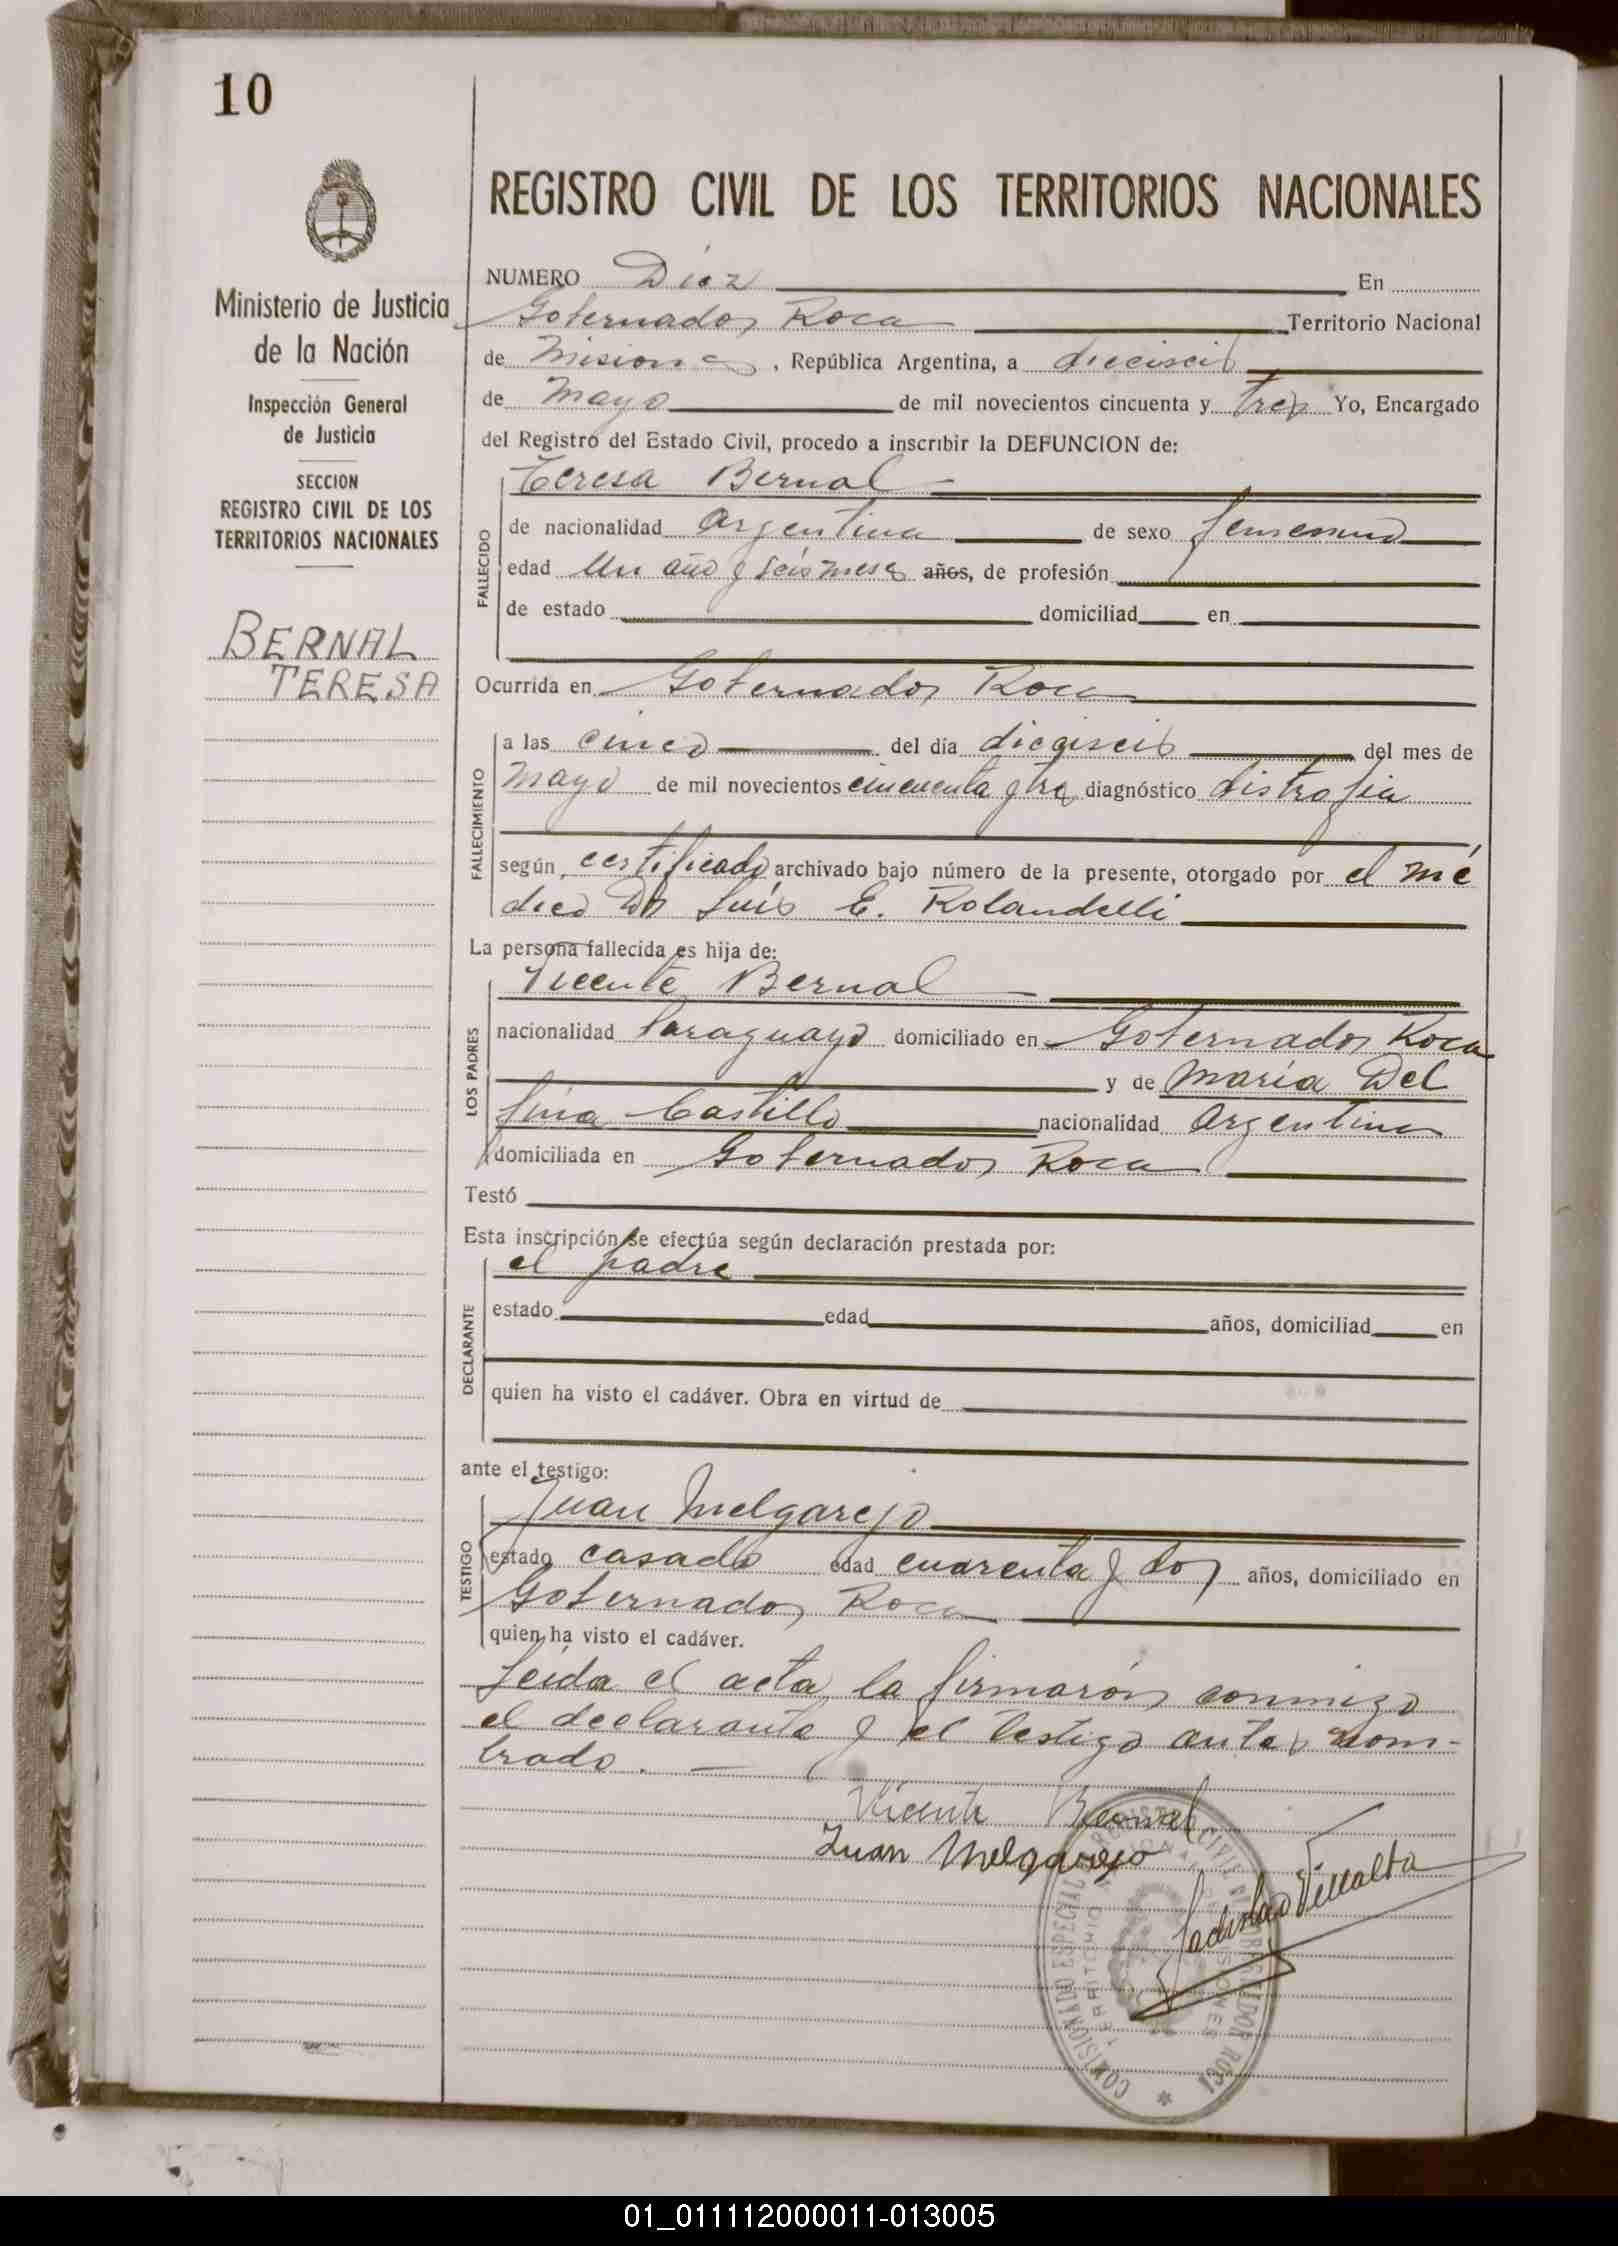 10
REGISTRO CIVIL DE LOS TERRITORIOS NACIONALES
Ministerio de Justicia
de la Nación
Inspección General
de Justicia
SECCION
REGISTRO CIVIL DE LOS
TERRITORIOS NACIONALES
BERNAL
TERESA
NUMERO Diez En
Gobernador Roca Territorio Nacional
de Misiones, República Argentina, a dieciseis
de Mayo de mil novecientos cincuenta y tres Yo, Encargado
del Registro del Estado Civil, procedo a inscribir la DEFUNCION de:
Teresa Bernal
FALLECIDO
de nacionalidad argentina de sexo femenino
edad Un año y seis meses años, de profesión
de estado domiciliad en
Ocurrida en Gobernador Roca
FALLECIMIENTO
a las cinco del día dieciseis del mes de
Mayo de mil novecientos cincuenta y tres diagnóstico distrofia
según certificado archivado bajo número de la presente, otorgado por el mé
dico Dr Luis E. Rolandelli
La persona fallecida es hija de:
LOS PADRES
Vicente Bernal
nacionalidad Paraguayo domiciliado en Gobernador Roca
y de María Del
fina Castillo nacionalidad argentina
domiciliada en Gobernador Roca
Testó
Esta inscripción se efectúa según declaración prestada por:
DECLARANTE
el padre
estado edad años, domiciliad en
quien ha visto el cadáver. Obra en virtud de
ante el testigo:
TESTIGO
Juan Melgarejo
estado casado edad cuarenta y dos años, domiciliado en
Gobernador Roca
quien ha visto el cadáver.
Leída el acta, la firmarón conmigo
el declarante y el testigo antes nom-
brado.
Vicente Bernal
Juan Melgarejo
Ladislao Villalba
COMISIONADO ESPECIAL REGISTRO CIVIL GOBERNADOR ROCA
TERRITORIO NACIONAL DE MISIONES
01_011112000011-013005